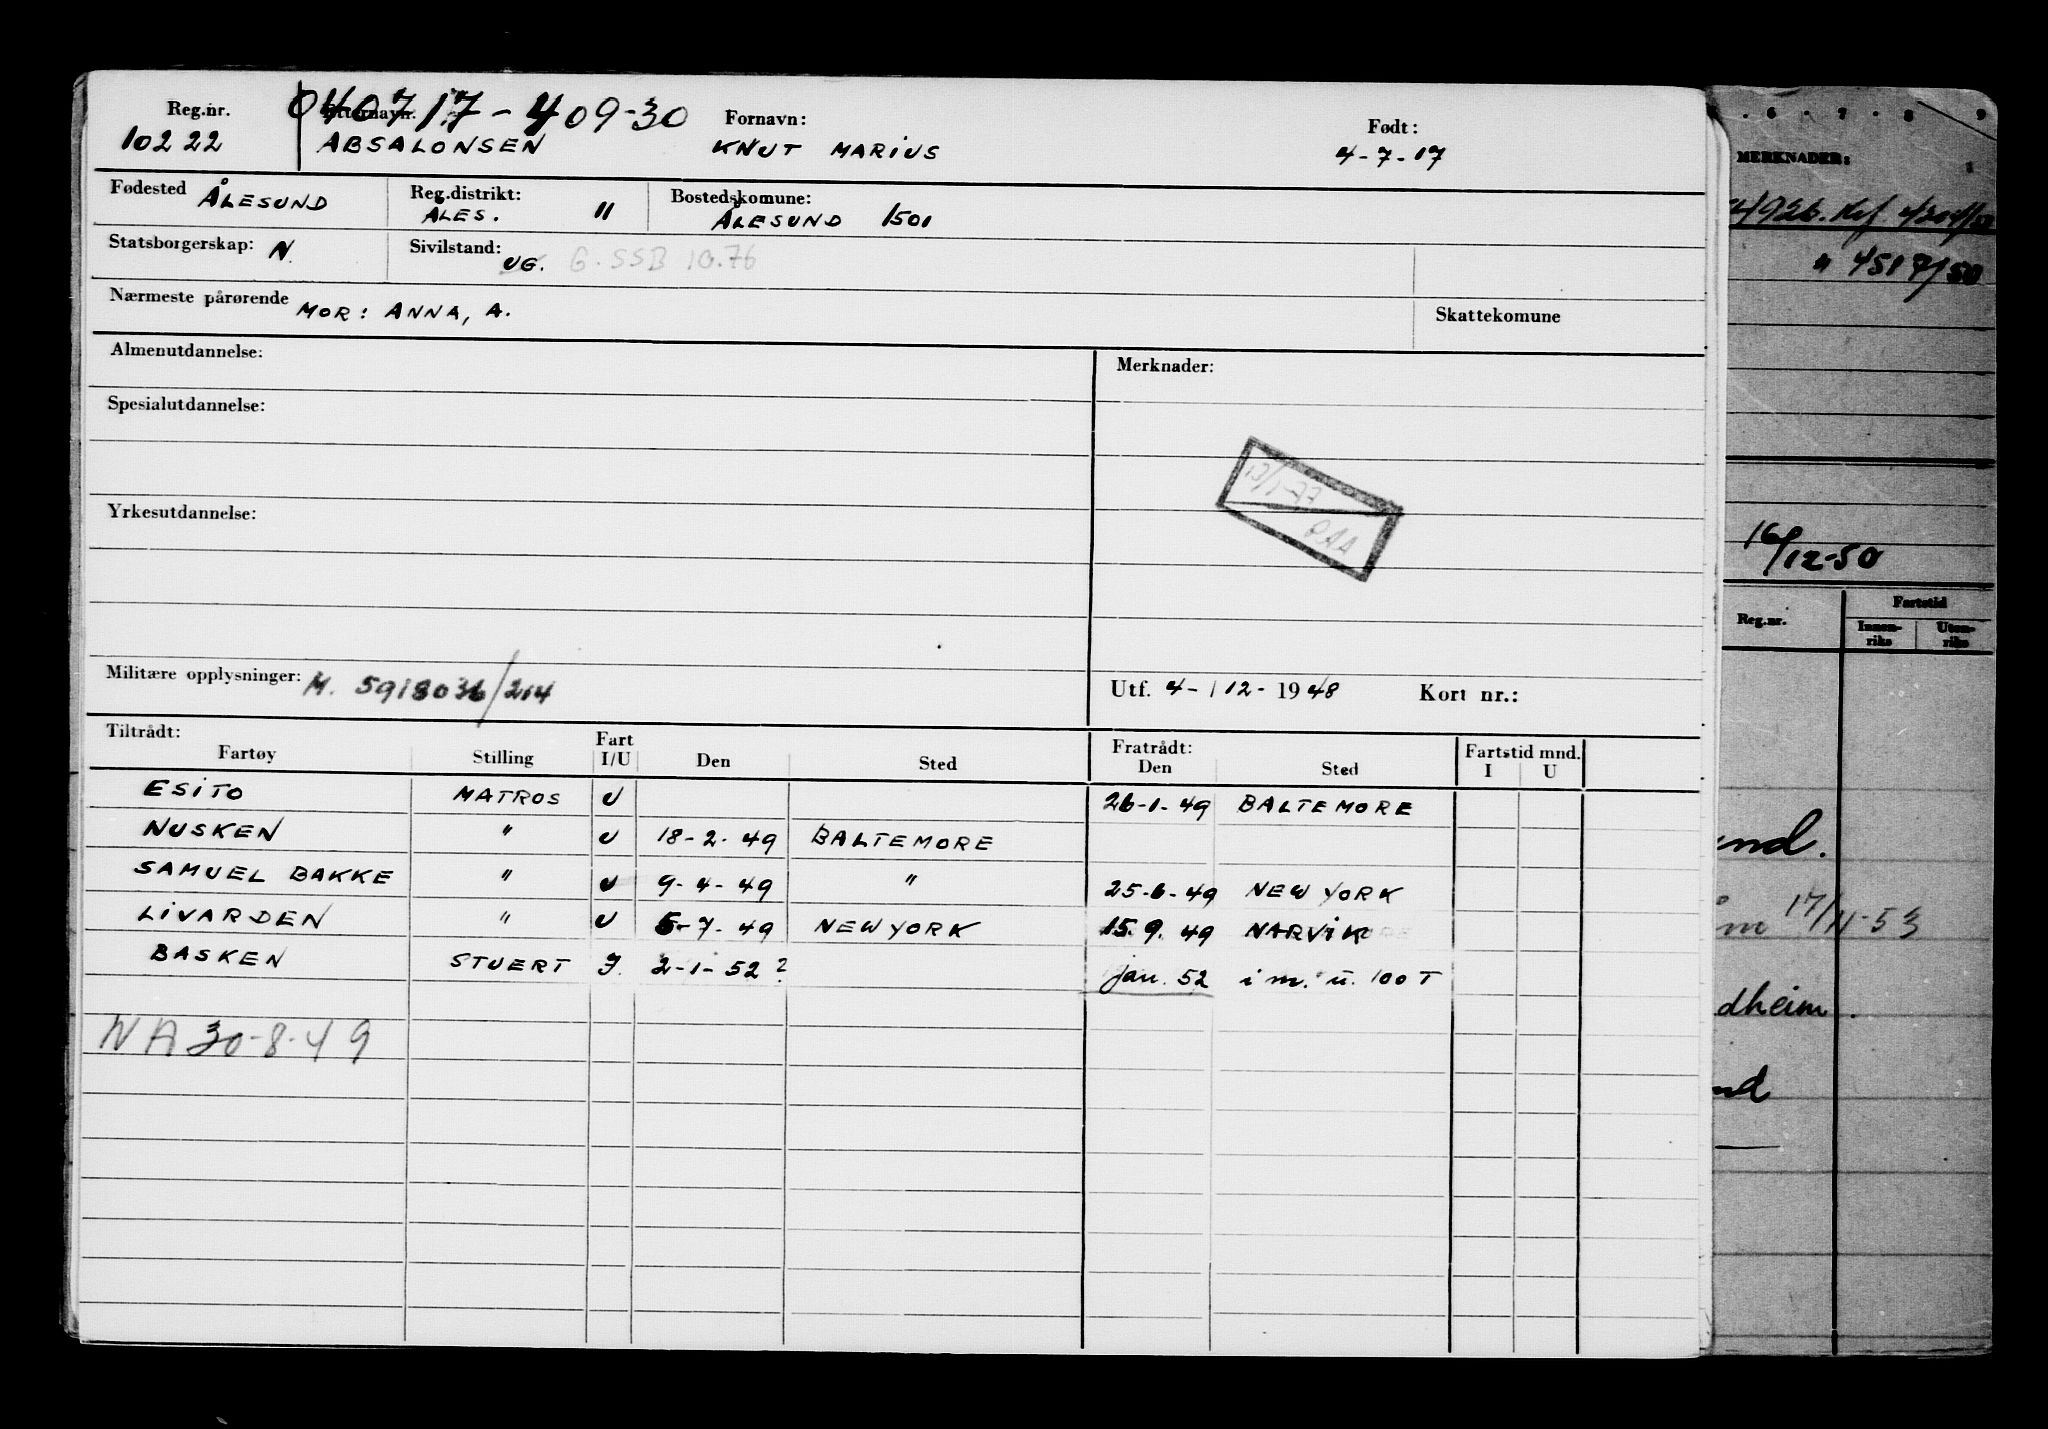 Reg.nr. Etternavn. 040717-409-30 Fornavn: Født:
10222 ABSALONSEN KNUT MARIUS 4-7-17
Fødested ÅLESUND Reg.distrikt: ÅLES. " Bostedskomune: ÅLESUND 1501
Statsborgerskap: N. Sivilstand: UG. G. SSB 10.76
Nærmeste pårørende MOR: ANNA, A. Skattekomune
Almenutdannelse: Merknader:
Spesialutdannelse:
Yrkesutdannelse:
Militære opplysninger: M. 5918036/214 Utf. 4-/12-1948 Kort nr.:
Tiltrådt: Fratrådt: Fartstid mnd.
Fartøy Stilling Fart I/U Den Sted Den Sted I U
ESITO MATROS U 26-1-49 BALTEMORE
NUSKEN " U 18-2-49 BALTEMORE
SAMUEL BAKKE " U 9-4-49 " 25-6-49 NEW YORK
LIVARDEN " U 5-7-49 NEW YORK 15.9.49 NARVIK
BASKEN STUERT I. 2-1-52? jan. 52 i m. u. 100 T
NA 30-8-49
6 · 7 · 8 9
MERKNADER:
" 4517/50
16/12-50
Reg.nr. Fartstid
Innen-riks Uten-riks
und.
17/11-53
dheim.
nd